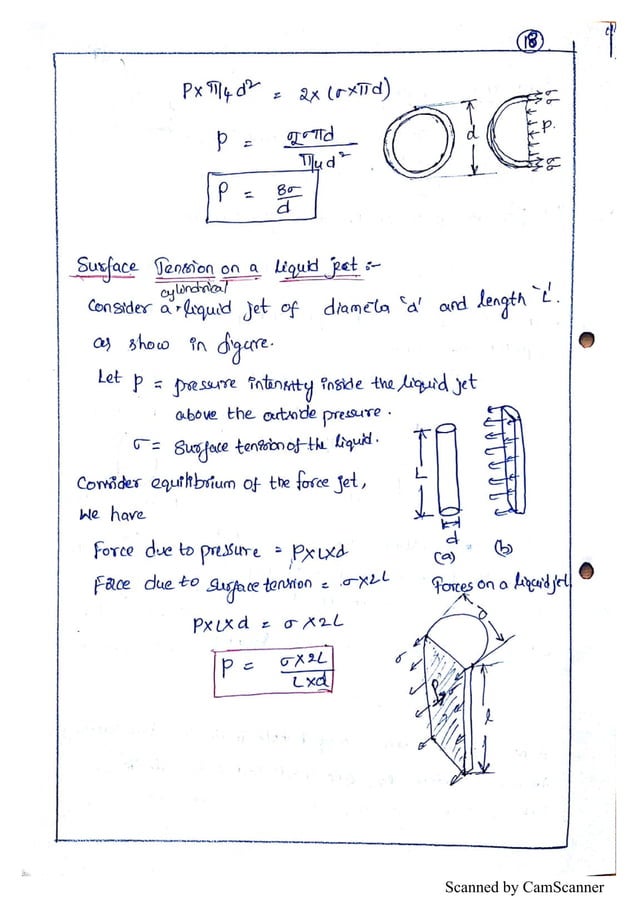 18
P x π/4 d² = 2x (σ x πd)
P = 2σπd / π/4 d²
P = 8σ / d
d
σ
P.
σ
Surface Tension on a Liquid jest :-
cylindrical
Consider a liquid jet of diameta 'd' and length 'L'.
as show in figure.
Let P = pressure intensity inside the liquid jet
above the outside pressure.
σ = Surface tension of the liquid.
Consider equilibrium of the force jet,
We have
L
d
(a) (b)
Force due to pressure = PxLxd
Force due to Surface tension = σx2L
Forces on a liquid jet
PxLxd = σ x2L
P = σx2L / Lxd
d
σ
P
l
Scanned by CamScanner